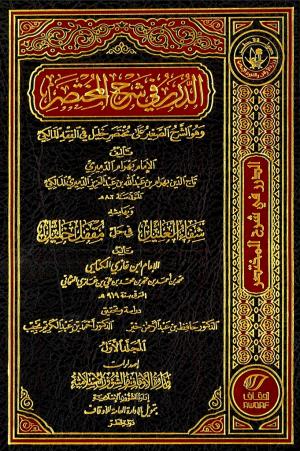 الدرر في شرح المختصر
وهو الشرح الصغير على مختصر خليل في الفقه المالكي
تأليف
الإمام بهرام الدميري
تاج الدين بهرام بن عبد الله بن عبد العزيز الدميري المالكي
وبهامشه
شفاء الغليل في حل مقفل خليل
تأليف
للإمام ابن غازي المكناسي
المتوفى سنة ٩١٩ هـ
دراسة وتحقيق
الدكتور حافظ بن عبد الرحمن خير الدكتور أحمد بن عبد الكريم نجيب
المجلد الأول
إصدارات
وزارة الأوقاف والشؤون الإسلامية
إدارة الشؤون الإسلامية
بتمويل الإدارة العامة للأوقاف
دولة قطر
الدرر في شرح المختصر
أوقاف
AWQAF